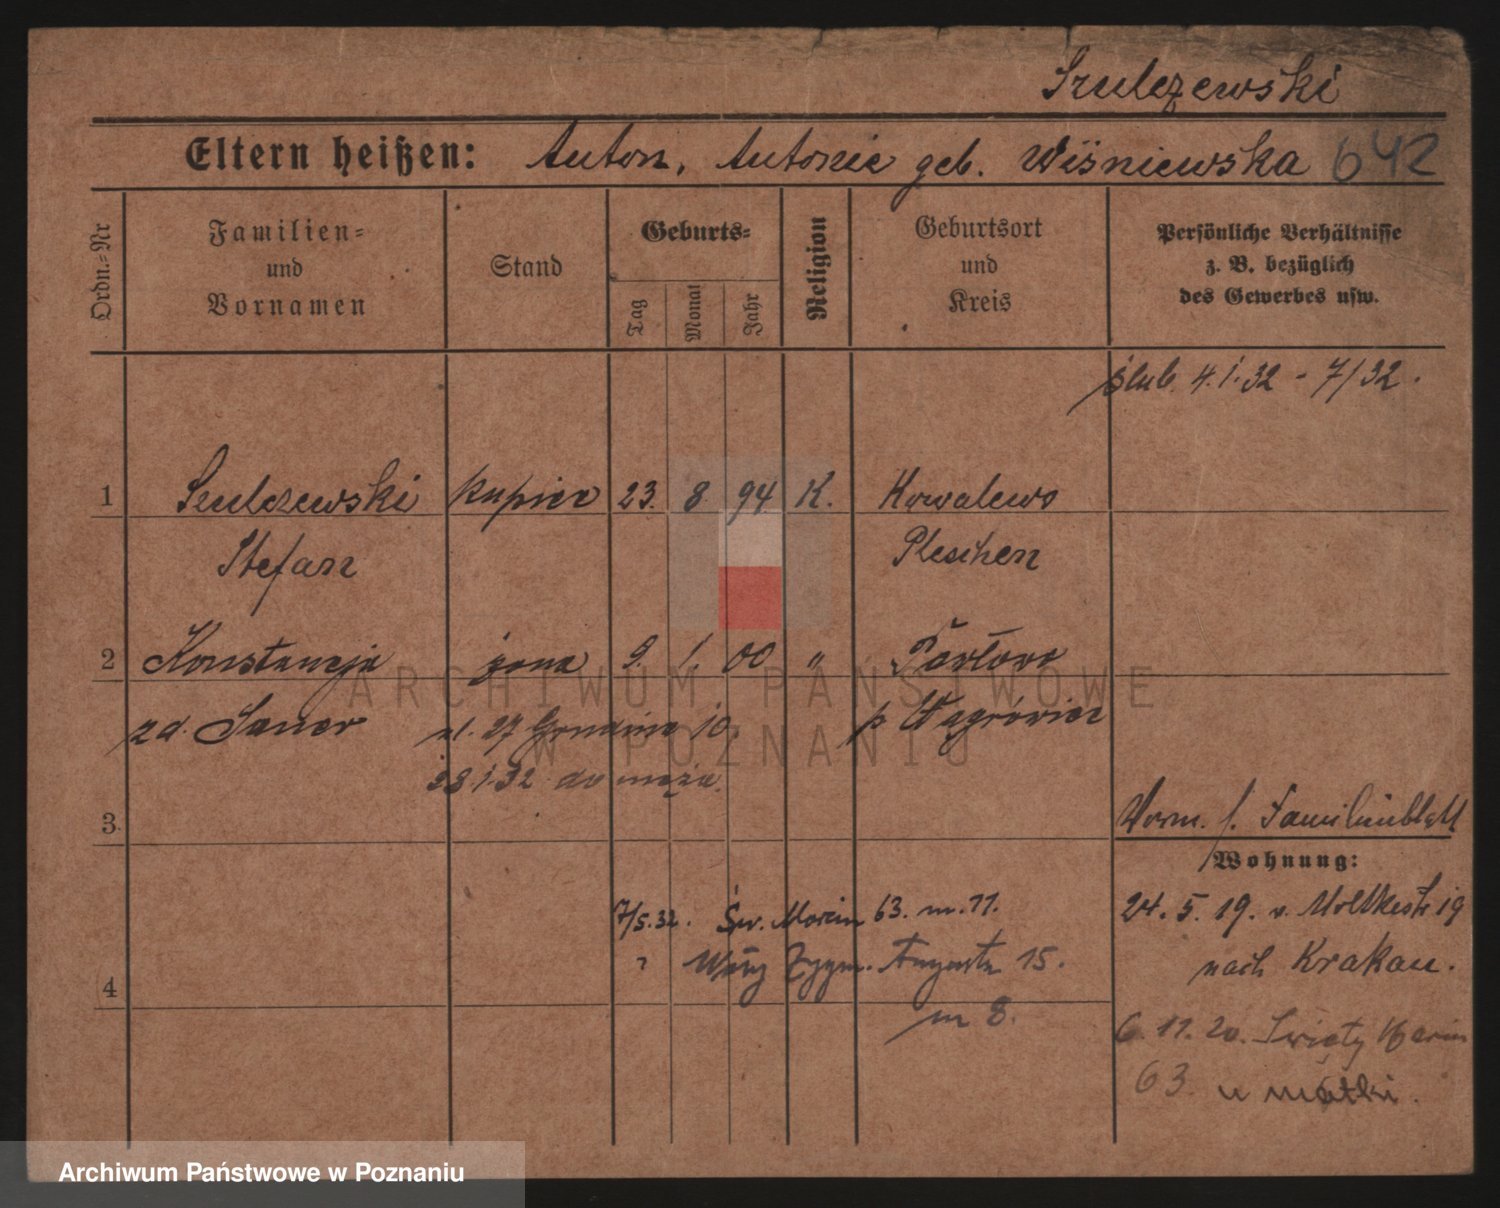 Szulczewski
Eltern heißen: Anton, Antonie geb. Wiśniewska 642
Ordn.-Nr
Familien- und Vornamen
Stand
Geburts-
Tag
Monat
Jahr
Religion
Geburtsort und Kreis
Persönliche Verhältnisse
z. B. bezüglich
des Gewerbes usw.
ślub. 4.1.32 - 7/32.
1 Szulczewski kupiec 23. 8. 94 K. Kowalewo
Stefan Pleschen
2 Konstancja żona 9. 1. 00 "
zd. Sauer p Wągrówiec
ul. 27 Grudnia 10.
28.1.32 do męża.
3
Vorm. s. Familienblatt
Wohnung:
24. 5. 19. v. Moltkestr 19
nach Krakau.
7/5.32. Św. Marcin 63. m. 11.
4 Zygm. Augusta 15.
m 8.
6. 11. 20. Święty Marcin
63. u matki.
ARCHIWUM PAŃSTWOWE
W POZNANIU
Archiwum Państwowe w Poznaniu